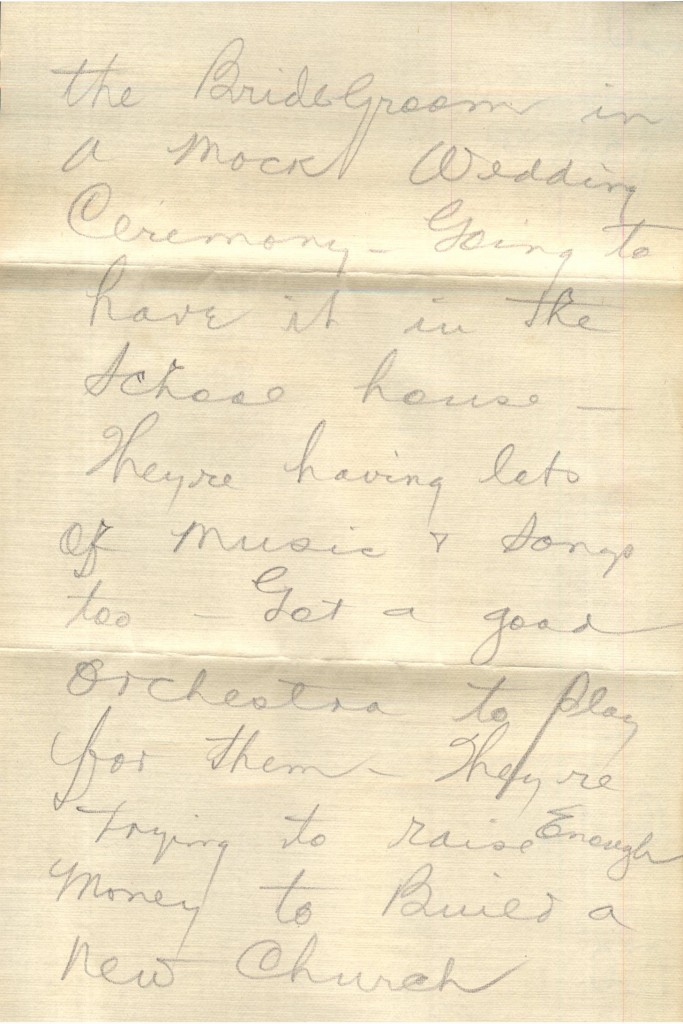 the BrideGroom in
a Mock Wedding
Ceremony - Going to
have it in the
School house -
Theyre having lots
of Music & Songs
too - Got a good
Orchestra to play
for them - Theyre
trying to raise Enough
Money to Build a
New Church